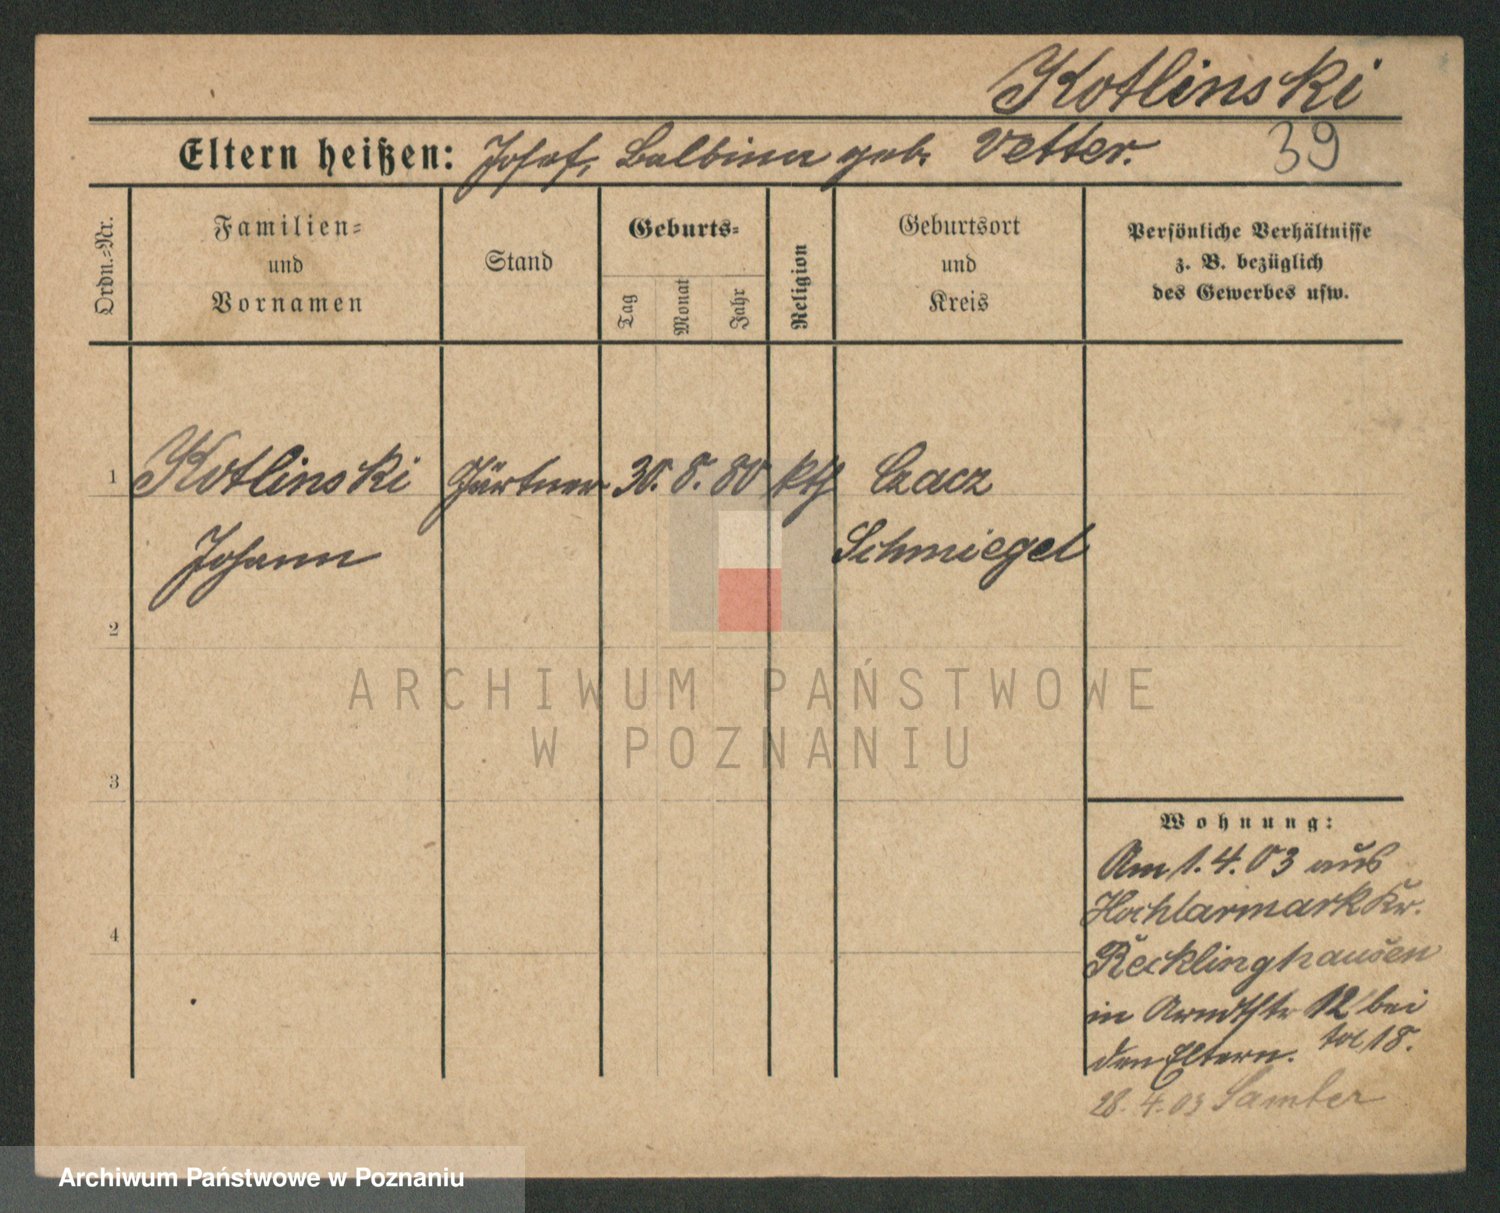 Kotlinski
Eltern heißen: Josef, Balbina geb. Vetter.
39
Ordn.-Nr.
Familien-
und
Vornamen
Stand
Geburts-
Tag
Monat
Jahr
Religion
Geburtsort
und
Kreis
Persönliche Verhältnisse
z. B. bezüglich
des Gewerbes usw.
1
Kotlinski Gärtner 30. 8. 80 kth Czacz
Johann Schmiegel
2
3
4
ARCHIWUM PAŃSTWOWE
W POZNANIU
Wohnung:
Am 1. 4. 03 aus
Hochlarmark Kr.
Recklinghausen
in Arndtstr 12 bei
den Eltern. 18.
28. 4. 03 Samter
Archiwum Państwowe w Poznaniu